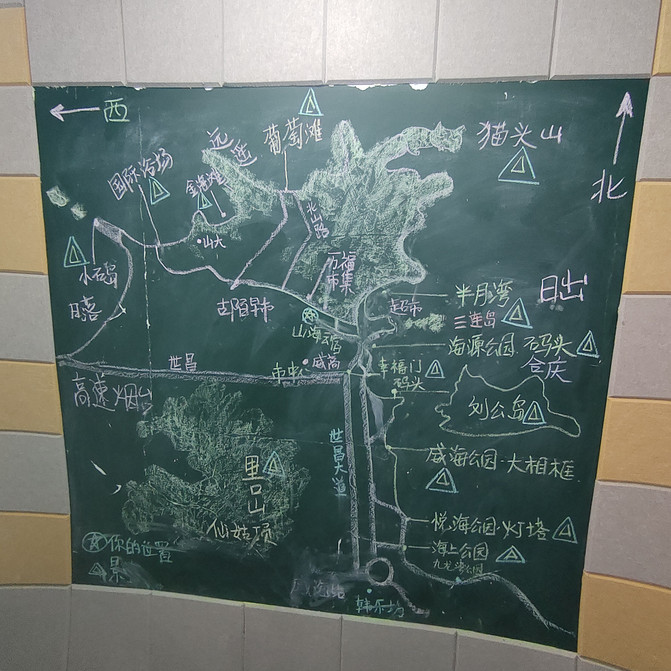 西
葡萄滩
远遥
猫头山
国际浴场
金海滩
北
山大
北山路
小石岛
日落
万福
市集
古陌早市
超市
半月湾
日出
三连岛
山海云宫
海源公园
石码头
合庆
世昌
市中
威高
幸福门
码头
高速 烟台
刘公岛
世昌大道
威海公园·大相框
里口山
仙姑顶
悦海公园·灯塔
你的位置
景
海上公园
九龙湾公园
韩乐坊